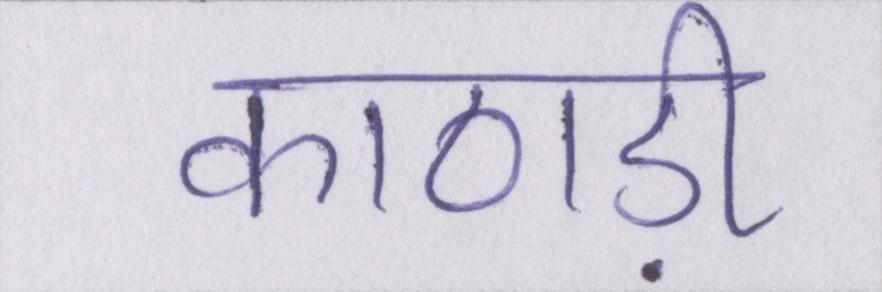 काठाड़ी